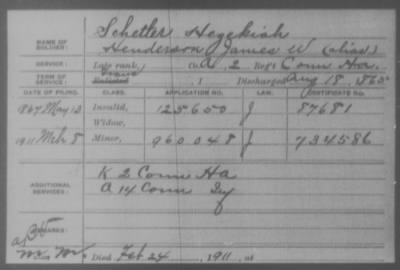 Schetler Hezekiah
NAME OF SOLDIER: Henderson James W (alias)
SERVICE: Late rank, Co. A, 2 Reg't Conn H.A.
TERM OF SERVICE: Enlisted , 1 Discharged Aug 18, 1865
DATE OF FILING. CLASS. APPLICATION NO. LAW. CERTIFICATE NO.
1867 May 13 Invalid, 125650 J 87681
Widow,
1911 Mch 8 Minor, 960048 J 734586
ADDITIONAL SERVICES: K 2 Conn H A
A 14 Conn Inf
REMARKS:
Died Feb 24, 1911, at